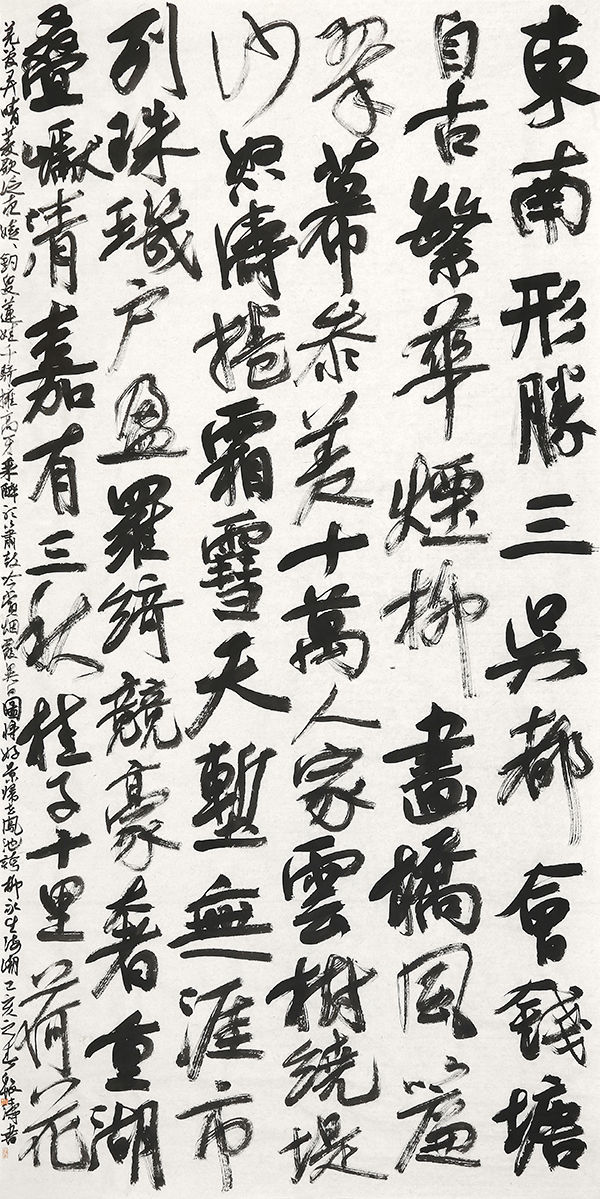 東南形勝三吳都會錢塘
自古繁華煙柳畫橋風簾
翠幕參差十萬人家雲樹繞堤
沙怒濤捲霜雪天塹無涯市
列珠璣戶盈羅綺競豪奢重湖
疊巘清嘉有三秋桂子十里荷花
羌管弄晴菱歌泛夜嬉嬉釣叟蓮娃千騎擁高牙乘醉聽簫鼓吟賞烟霞異日圖將好景歸去鳳池誇柳永望海潮己亥之春濤書